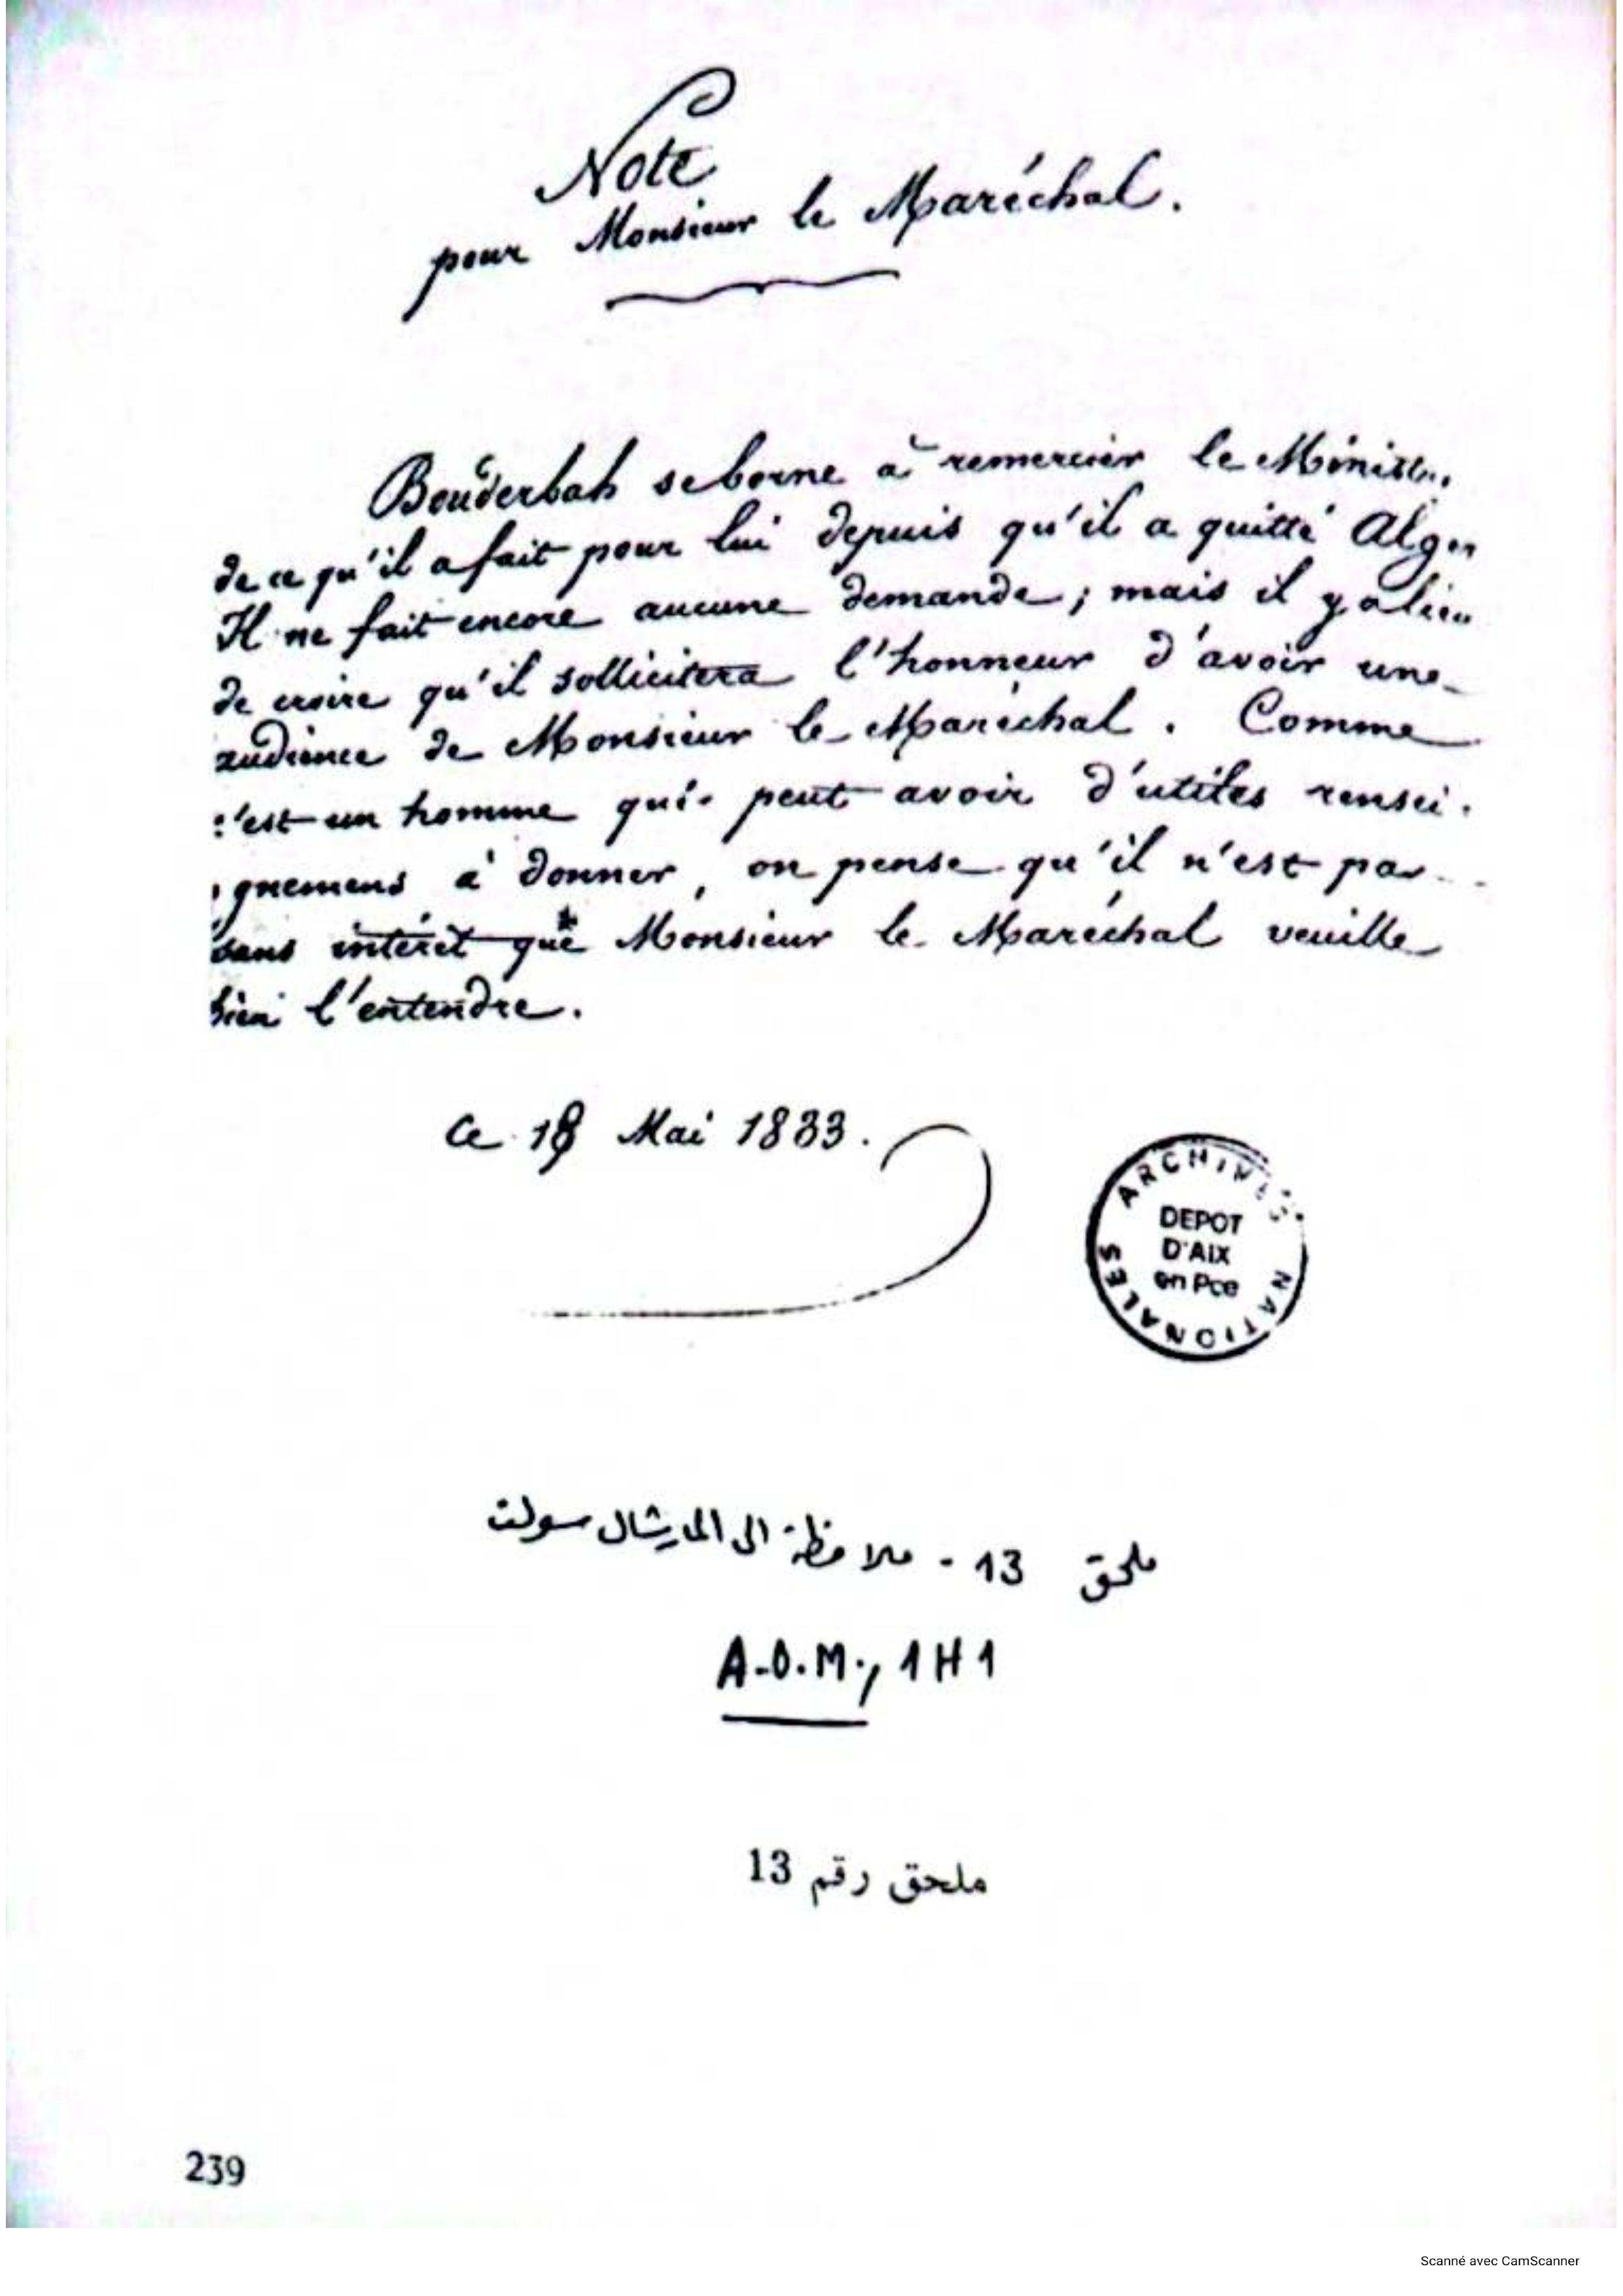 Note
pour Monsieur le Maréchal.
Bouderbah se borne à remercier le
de ce qu'il a fait pour lui depuis qu'il a quitté Alger
Il ne fait encore aucune demande ; mais il y a lieu
de croire qu'il sollicitera l'honneur d'avoir une
audience de Monsieur le Maréchal. Comme
c'est un homme qui peut avoir d'utiles rensei-
gnemens à donner, on pense qu'il n'est pas
sans intérêt que Monsieur le Maréchal veuille
bien l'entendre.
Ce 18 Mai 1833.
ARCHIVES NATIONALES
DEPOT
D'AIX
en Pce
ملحق 13 - ملاحظة الى الماريشال سولت
A.O.M., 1H1
ملحق رقم 13
239
Scanné avec CamScanner